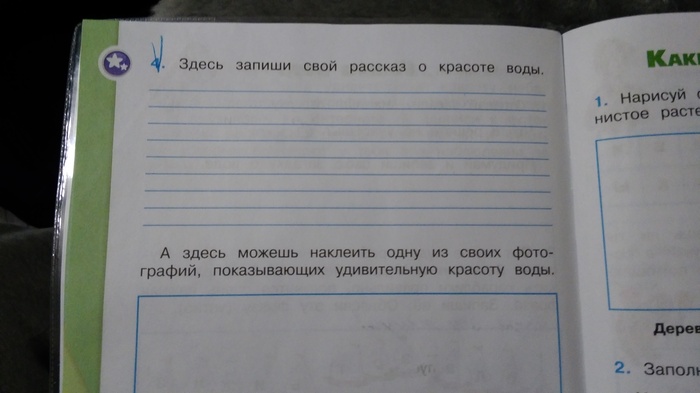 4. Здесь запиши свой рассказ о красоте воды.
А здесь можешь наклеить одну из своих фото-
графий, показывающих удивительную красоту воды.
Как
1. Нарисуй
нистое расте
Дерев
2. Заполн